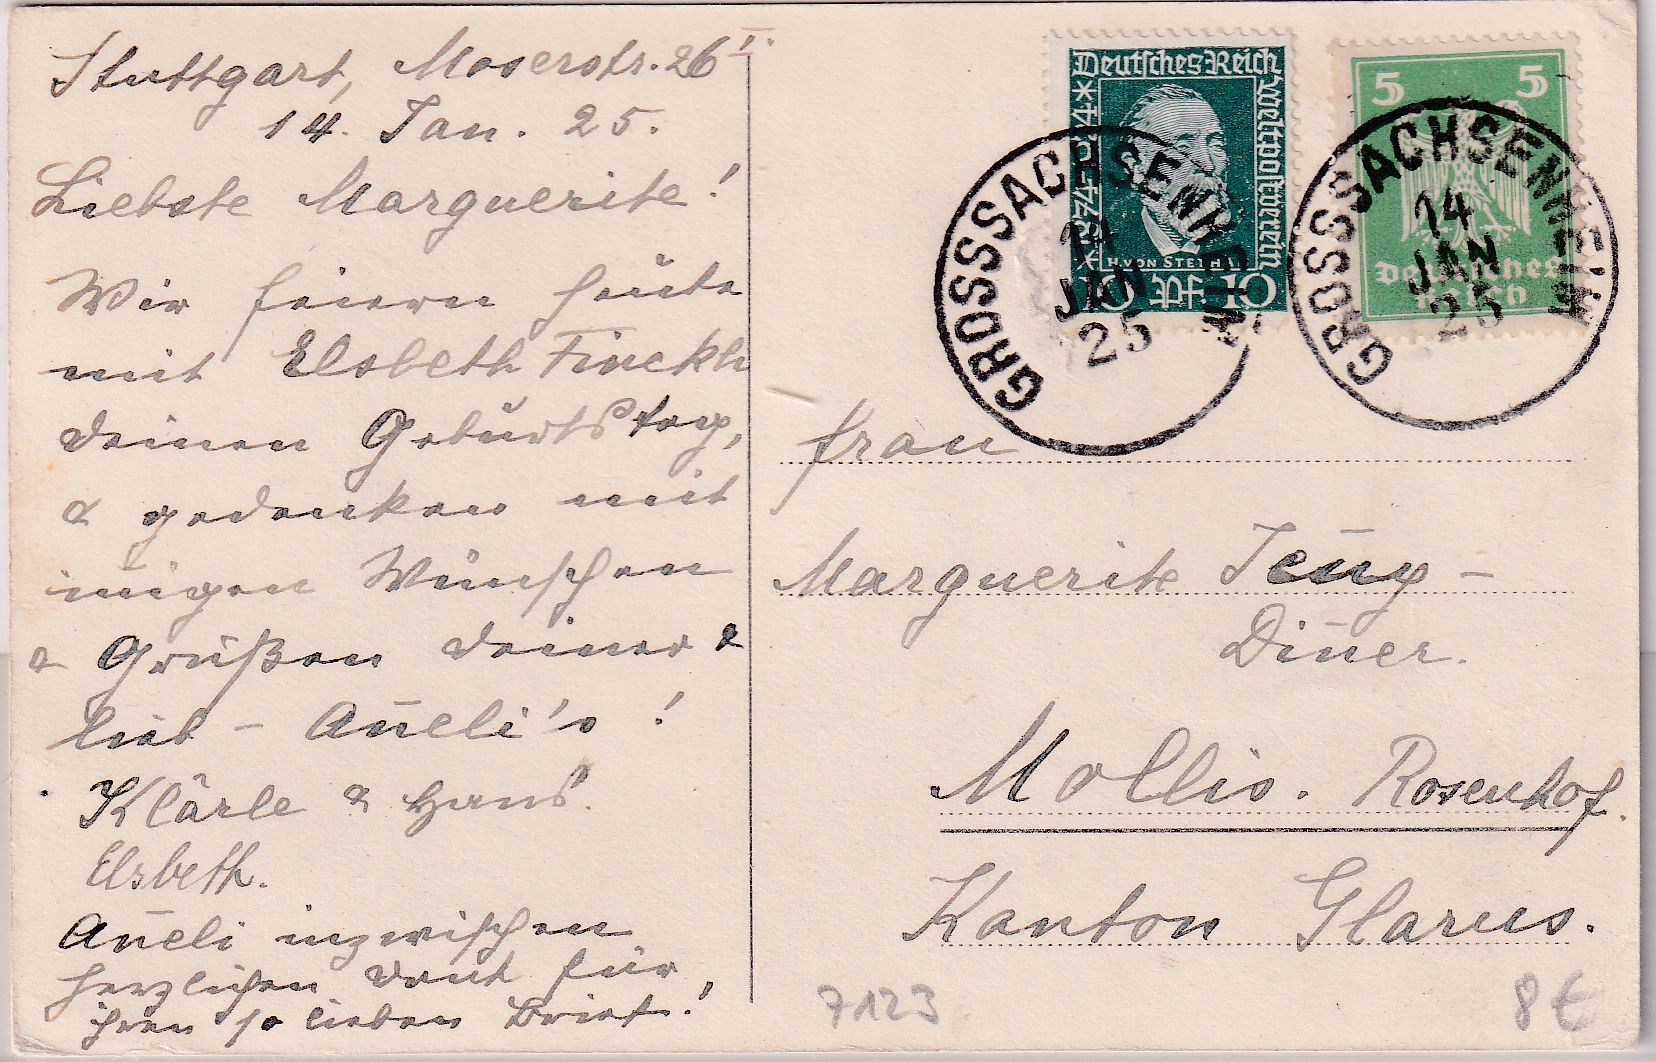 Stuttgart, Moserstr. 26 I
14. Jan. 25.
Liebste Marguerite!
Wir feiern heute
mit Elsbeth Finckh
deinen Geburtstag,
& gedenken mit
iñigen Wünschen
& Grüßen deiner &
lieb - Añeli's!
Klärle & Hans.
Elsbeth.
Añeli inzwischen
herzlichen Dank für
ihren so lieben Brief!
Deutsches Reich
Weltpostverein
*1874-1924*
H. VON STEPHAN
10 Pf 10
5 5
Deutsches
Reich
GROSSSACHSENHEIM
14
JAN
25
GROSSSACHSENHEIM
14
JAN
25
Frau
Marguerite Jeñy -
Diñer.
Mollis. Rosenhof.
Kanton Glarus.
7123
8 €